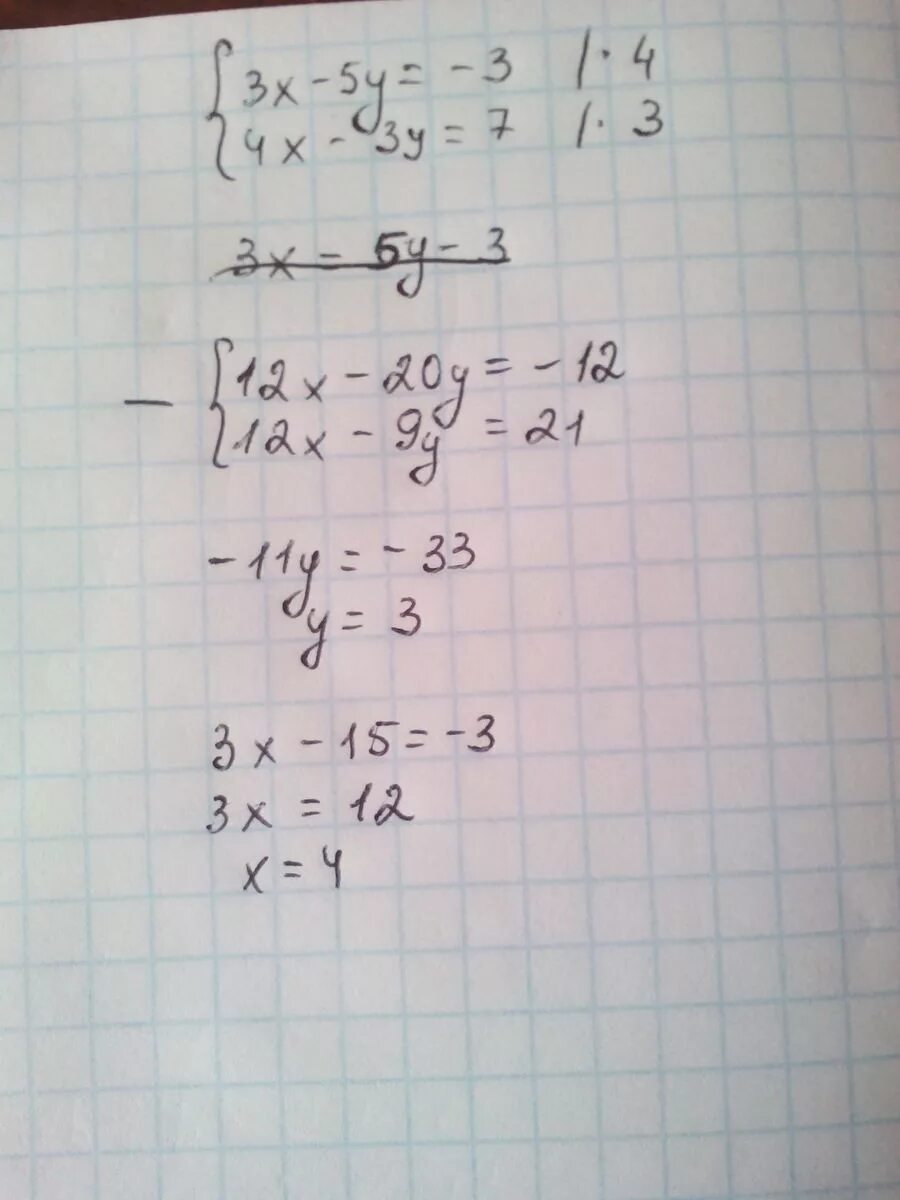 {3x - 5y = -3 | · 4
{4x - 3y = 7 | · 3
3x = 5y - 3
- {12x - 20y = -12
{12x - 9y = 21
-11y = -33
y = 3
3x - 15 = -3
3x = 12
x = 4